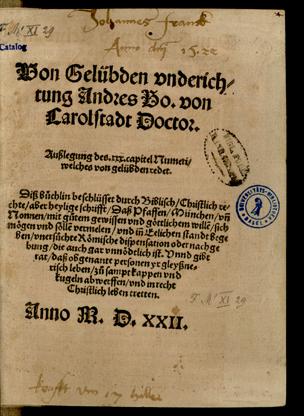 F. M¹ XI 29
Catalog
Johannes Franck
Anno dñj 15.22
Von Gelübden vnderich-
tung Andres Bo. von
Carolstadt Doctor.
Außlegung des .xxx. capitel Numeri/
welches von gelübden redet.
Diß büchlin beschlüsset durch Biblisch/ Christlich re-
chte/ aber heylige schrifft/ Daß Pfaffen/ München/ vñ
Nonnen/ mit gůtem gewissen vnd göttlichem wille/ sich
mögen vnd sölle vermelen/ vnd in Eelichen standt bege
ben/ vnersůchte Römische dispensation oder nachge
bung/ die auch gar vnnödtlich ist. Vnnd gibt
rat/ daß obgenante personen yr gleyßne-
risch leben/ zů sampt kappen vnd
kugeln abwerffen/ vnd in recht
Christlich leben tretten.
F. M¹ XI 29
Anno M. D. XXII.